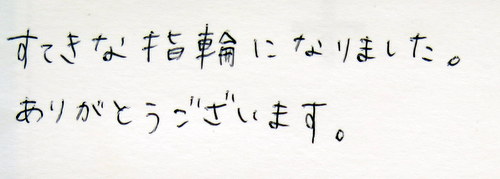 すてきな指輪になりました。
ありがとうございます。